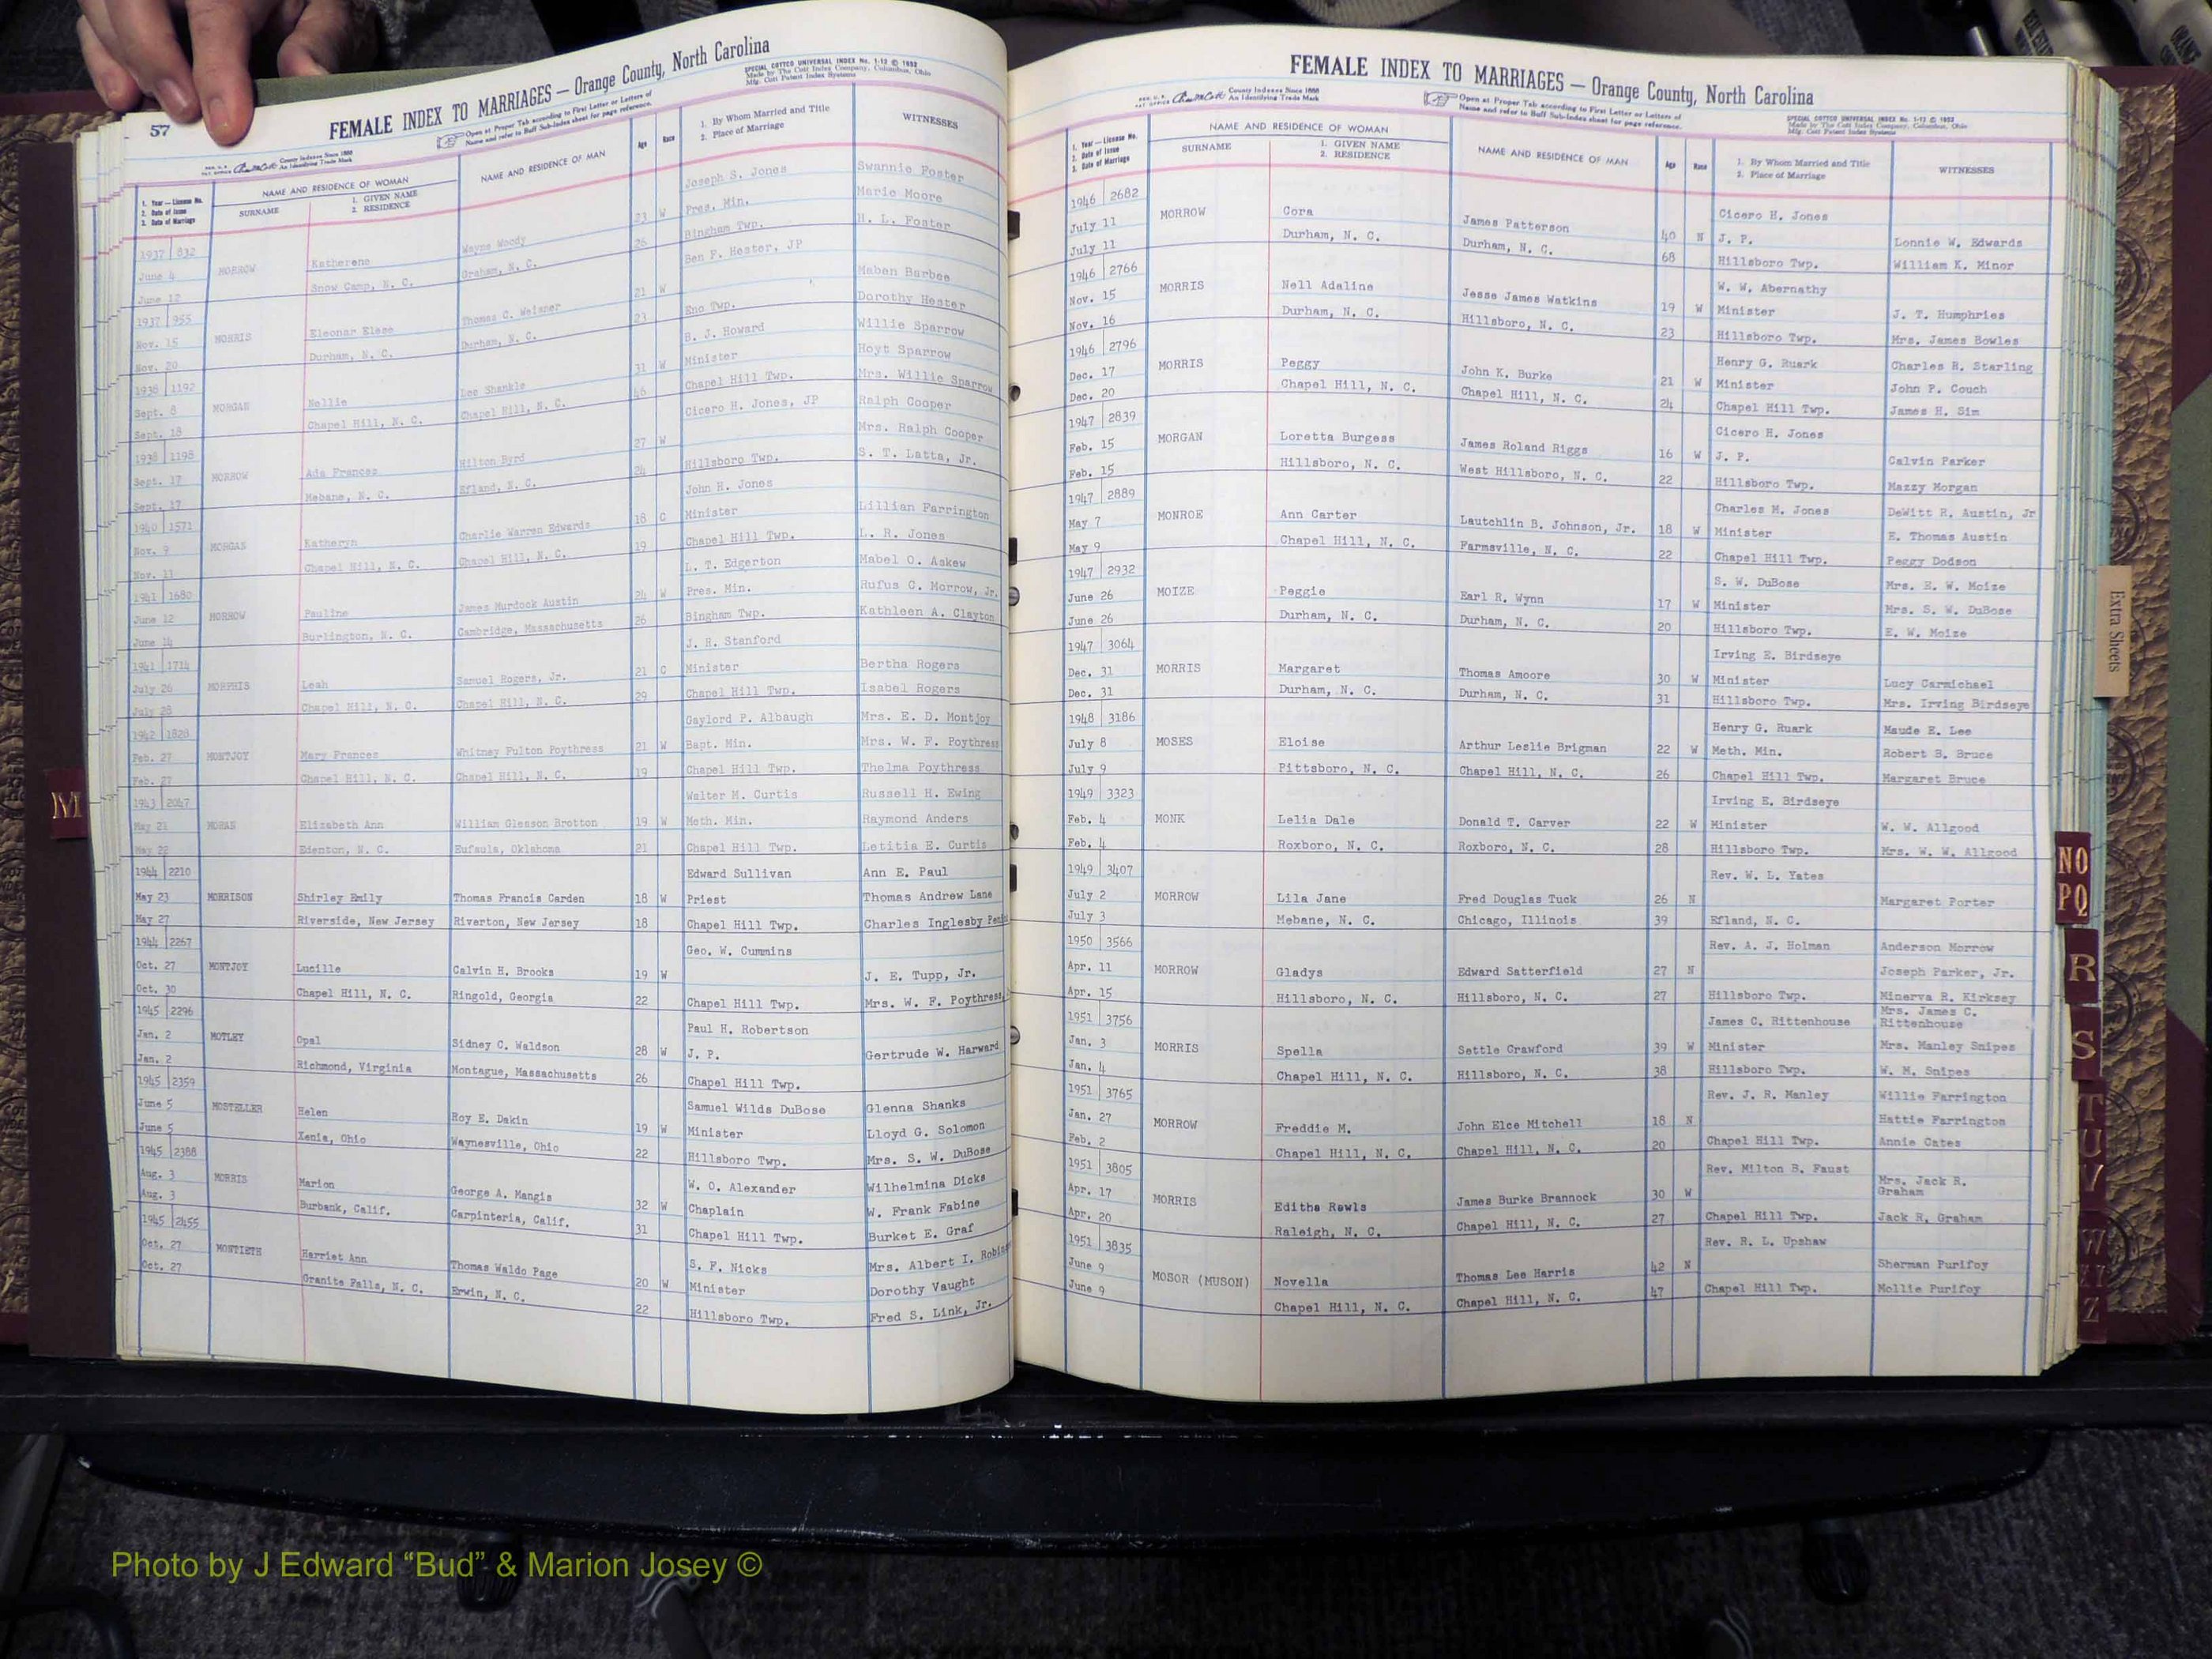 57
FEMALE INDEX TO MARRIAGES — Orange County, North Carolina
SPECIAL COTTCO UNIVERSAL INDEX No. 1-12 © 1952
Made by The Cott Index Company, Columbus, Ohio
Mfg. Cott Patent Index Systems
County Indexes Since 1888
An Identifying Trade Mark
Open at Proper Tab according to First Letter or Letters of
Name and refer to Buff Sub-Index sheet for page reference.
1. Year — License No.
2. Date of Issue
3. Date of Marriage
NAME AND RESIDENCE OF WOMAN
SURNAME
1. GIVEN NAME
2. RESIDENCE
NAME AND RESIDENCE OF MAN
Age
Race
1. By Whom Married and Title
2. Place of Marriage
WITNESSES
1937 832 Joseph S. Jones Swannie Foster
June 4 MORROW Katherene Wayne Woody 23 W Pres. Min. Marie Moore
June 12 Snow Camp, N. C. Graham, N. C. 26 Bingham Twp. H. L. Foster
1937 955 Ben F. Hester, JP
Nov. 15 MORRIS Eleonar Elese Thomas C. Weisner 21 W Maben Barbee
Nov. 20 Durham, N. C. Durham, N. C. 23 Eno Twp. Dorothy Hester
1938 1192 B. J. Howard Willie Sparrow
Sept. 8 MORGAN Nellie Lee Shankle 31 W Minister Hoyt Sparrow
Sept. 18 Chapel Hill, N. C. Chapel Hill, N. C. 46 Chapel Hill Twp. Mrs. Willie Sparrow
1938 1198 Cicero H. Jones, JP Ralph Cooper
Sept. 17 MORROW Ada Frances Hilton Byrd 27 W Mrs. Ralph Cooper
Sept. 17 Mebane, N. C. Efland, N. C. 24 Hillsboro Twp. S. T. Latta, Jr.
1940 1571 John H. Jones
Nov. 9 MORGAN Katheryn Charlie Warren Edwards 18 C Minister Lillian Farrington
Nov. 11 Chapel Hill, N. C. Chapel Hill, N. C. 19 Chapel Hill Twp. L. R. Jones
1941 1680 L. T. Edgerton Mabel O. Askew
June 12 MORROW Pauline James Murdock Austin 24 W Pres. Min. Rufus C. Morrow, Jr.
June 14 Burlington, N. C. Cambridge, Massachusetts 26 Bingham Twp. Kathleen A. Clayton
1941 1714 J. H. Stanford
July 26 MORPHIS Leah Samuel Rogers, Jr. 21 C Minister Bertha Rogers
July 28 Chapel Hill, N. C. Chapel Hill, N. C. 29 Chapel Hill Twp. Isabel Rogers
1942 1828 Gaylord P. Albaugh Mrs. E. D. Montjoy
Feb. 27 MONTJOY Mary Frances Whitney Fulton Poythress 21 W Bapt. Min. Mrs. W. F. Poythress
Feb. 27 Chapel Hill, N. C. Chapel Hill, N. C. 19 Chapel Hill Twp. Thelma Poythress
1943 2047 Walter M. Curtis Russell H. Ewing
May 21 MORAN Elizabeth Ann William Gleason Brotton 19 W Meth. Min. Raymond Anders
May 22 Edenton, N. C. Eufaula, Oklahoma 21 Chapel Hill Twp. Letitia E. Curtis
1944 2210 Edward Sullivan Ann E. Paul
May 23 MORRISON Shirley Emily Thomas Francis Carden 18 W Priest Thomas Andrew Lane
May 27 Riverside, New Jersey Riverton, New Jersey 18 Chapel Hill Twp. Charles Inglesby
1944 2267 Geo. W. Cummins
Oct. 27 MONTJOY Lucille Calvin H. Brooks 19 W J. E. Tupp, Jr.
Oct. 30 Chapel Hill, N. C. Ringold, Georgia 22 Chapel Hill Twp. Mrs. W. F. Poythress
1945 2296 Paul H. Robertson
Jan. 2 MOTLEY Opal Sidney C. Waldson 28 W J. P. Gertrude W. Harward
Jan. 2 Richmond, Virginia Montague, Massachusetts 26 Chapel Hill Twp.
1945 2359 Samuel Wilds DuBose Glenna Shanks
June 5 MOSTELLER Helen Roy E. Dakin 19 W Minister Lloyd G. Solomon
June 5 Xenia, Ohio Waynesville, Ohio 22 Hillsboro Twp. Mrs. S. W. DuBose
1945 2388 W. O. Alexander Wilhelmina Dicks
Aug. 3 MORRIS Marion George A. Mangis 32 W Chaplain W. Frank Fabine
Aug. 3 Burbank, Calif. Carpinteria, Calif. 31 Chapel Hill Twp. Burket E. Graf
1945 2455 S. F. Nicks Mrs. Albert I.
Oct. 27 MONTIETH Harriet Ann Thomas Waldo Page 20 W Minister Dorothy Vaught
Oct. 27 Granite Falls, N. C. Erwin, N. C. 22 Hillsboro Twp. Fred S. Link, Jr.
FEMALE INDEX TO MARRIAGES — Orange County, North Carolina
County Indexes Since 1888
An Identifying Trade Mark
Open at Proper Tab according to First Letter or Letters of
Name and refer to Buff Sub-Index sheet for page reference.
SPECIAL COTTCO UNIVERSAL INDEX No. 1-12 © 1952
Made by The Cott Index Company, Columbus, Ohio
Mfg. Cott Patent Index Systems
1. Year — License No.
2. Date of Issue
3. Date of Marriage
NAME AND RESIDENCE OF WOMAN
SURNAME
1. GIVEN NAME
2. RESIDENCE
NAME AND RESIDENCE OF MAN
Age
Race
1. By Whom Married and Title
2. Place of Marriage
WITNESSES
1946 2682 Cicero H. Jones
July 11 MORROW Cora James Patterson 40 N J. P. Lonnie W. Edwards
July 11 Durham, N. C. Durham, N. C. 68 Hillsboro Twp. William K. Minor
1946 2766 W. W. Abernathy
Nov. 15 MORRIS Nell Adaline Jesse James Watkins 19 W Minister J. T. Humphries
Nov. 16 Durham, N. C. Hillsboro, N. C. 23 Hillsboro Twp. Mrs. James Bowles
1946 2796 Henry G. Ruark Charles R. Starling
Dec. 17 MORRIS Peggy John K. Burke 21 W Minister John P. Couch
Dec. 20 Chapel Hill, N. C. Chapel Hill, N. C. 24 Chapel Hill Twp. James H. Sim
1947 2839 Cicero H. Jones
Feb. 15 MORGAN Loretta Burgess James Roland Riggs 16 W J. P. Calvin Parker
Feb. 15 Hillsboro, N. C. West Hillsboro, N. C. 22 Hillsboro Twp. Mazzy Morgan
1947 2889 Charles M. Jones DeWitt R. Austin, Jr
May 7 MONROE Ann Carter Lautchlin B. Johnson, Jr. 18 W Minister E. Thomas Austin
May 9 Chapel Hill, N. C. Farmsville, N. C. 22 Chapel Hill Twp. Peggy Dodson
1947 2932 S. W. DuBose Mrs. E. W. Moize
June 26 MOIZE Peggie Earl R. Wynn 17 W Minister Mrs. S. W. DuBose
June 26 Durham, N. C. Durham, N. C. 20 Hillsboro Twp. E. W. Moize
1947 3064 Irving E. Birdseye
Dec. 31 MORRIS Margaret Thomas Amoore 30 W Minister Lucy Carmichael
Dec. 31 Durham, N. C. Durham, N. C. 31 Hillsboro Twp. Mrs. Irving Birdseye
1948 3186 Henry G. Ruark Maude E. Lee
July 8 MOSES Eloise Arthur Leslie Brigman 22 W Meth. Min. Robert B. Bruce
July 9 Pittsboro, N. C. Chapel Hill, N. C. 26 Chapel Hill Twp. Margaret Bruce
1949 3323 Irving E. Birdseye
Feb. 4 MONK Lelia Dale Donald T. Carver 22 W Minister W. W. Allgood
Feb. 4 Roxboro, N. C. Roxboro, N. C. 28 Hillsboro Twp. Mrs. W. W. Allgood
1949 3407 Rev. W. L. Yates
July 2 MORROW Lila Jane Fred Douglas Tuck 26 N Margaret Porter
July 3 Mebane, N. C. Chicago, Illinois 39 Efland, N. C.
1950 3566 Rev. A. J. Holman Anderson Morrow
Apr. 11 MORROW Gladys Edward Satterfield 27 N Joseph Parker, Jr.
Apr. 15 Hillsboro, N. C. Hillsboro, N. C. 27 Hillsboro Twp. Minerva R. Kirksey
1951 3756 James C. Rittenhouse Mrs. James C. Rittenhouse
Jan. 3 MORRIS Spella Settle Crawford 39 W Minister Mrs. Manley Snipes
Jan. 4 Chapel Hill, N. C. Hillsboro, N. C. 38 Hillsboro Twp. W. M. Snipes
1951 3765 Rev. J. R. Manley Willie Farrington
Jan. 27 MORROW Freddie M. John Elce Mitchell 18 N Hattie Farrington
Feb. 2 Chapel Hill, N. C. Chapel Hill, N. C. 20 Chapel Hill Twp. Annie Cates
1951 3805 Rev. Milton B. Faust
Apr. 17 MORRIS Editha Rawls James Burke Brannock 30 W Mrs. Jack R. Graham
Apr. 20 Raleigh, N. C. Chapel Hill, N. C. 27 Chapel Hill Twp. Jack R. Graham
1951 3835 Rev. R. L. Upshaw
June 9 MOSOR (MUSON) Novella Thomas Lee Harris 42 N Sherman Purifoy
June 9 Chapel Hill, N. C. Chapel Hill, N. C. 47 Chapel Hill Twp. Mollie Purifoy
M
Extra Sheets
NO
PQ
R
S
T
U
V
W
Z
Photo by J Edward “Bud” & Marion Josey ©